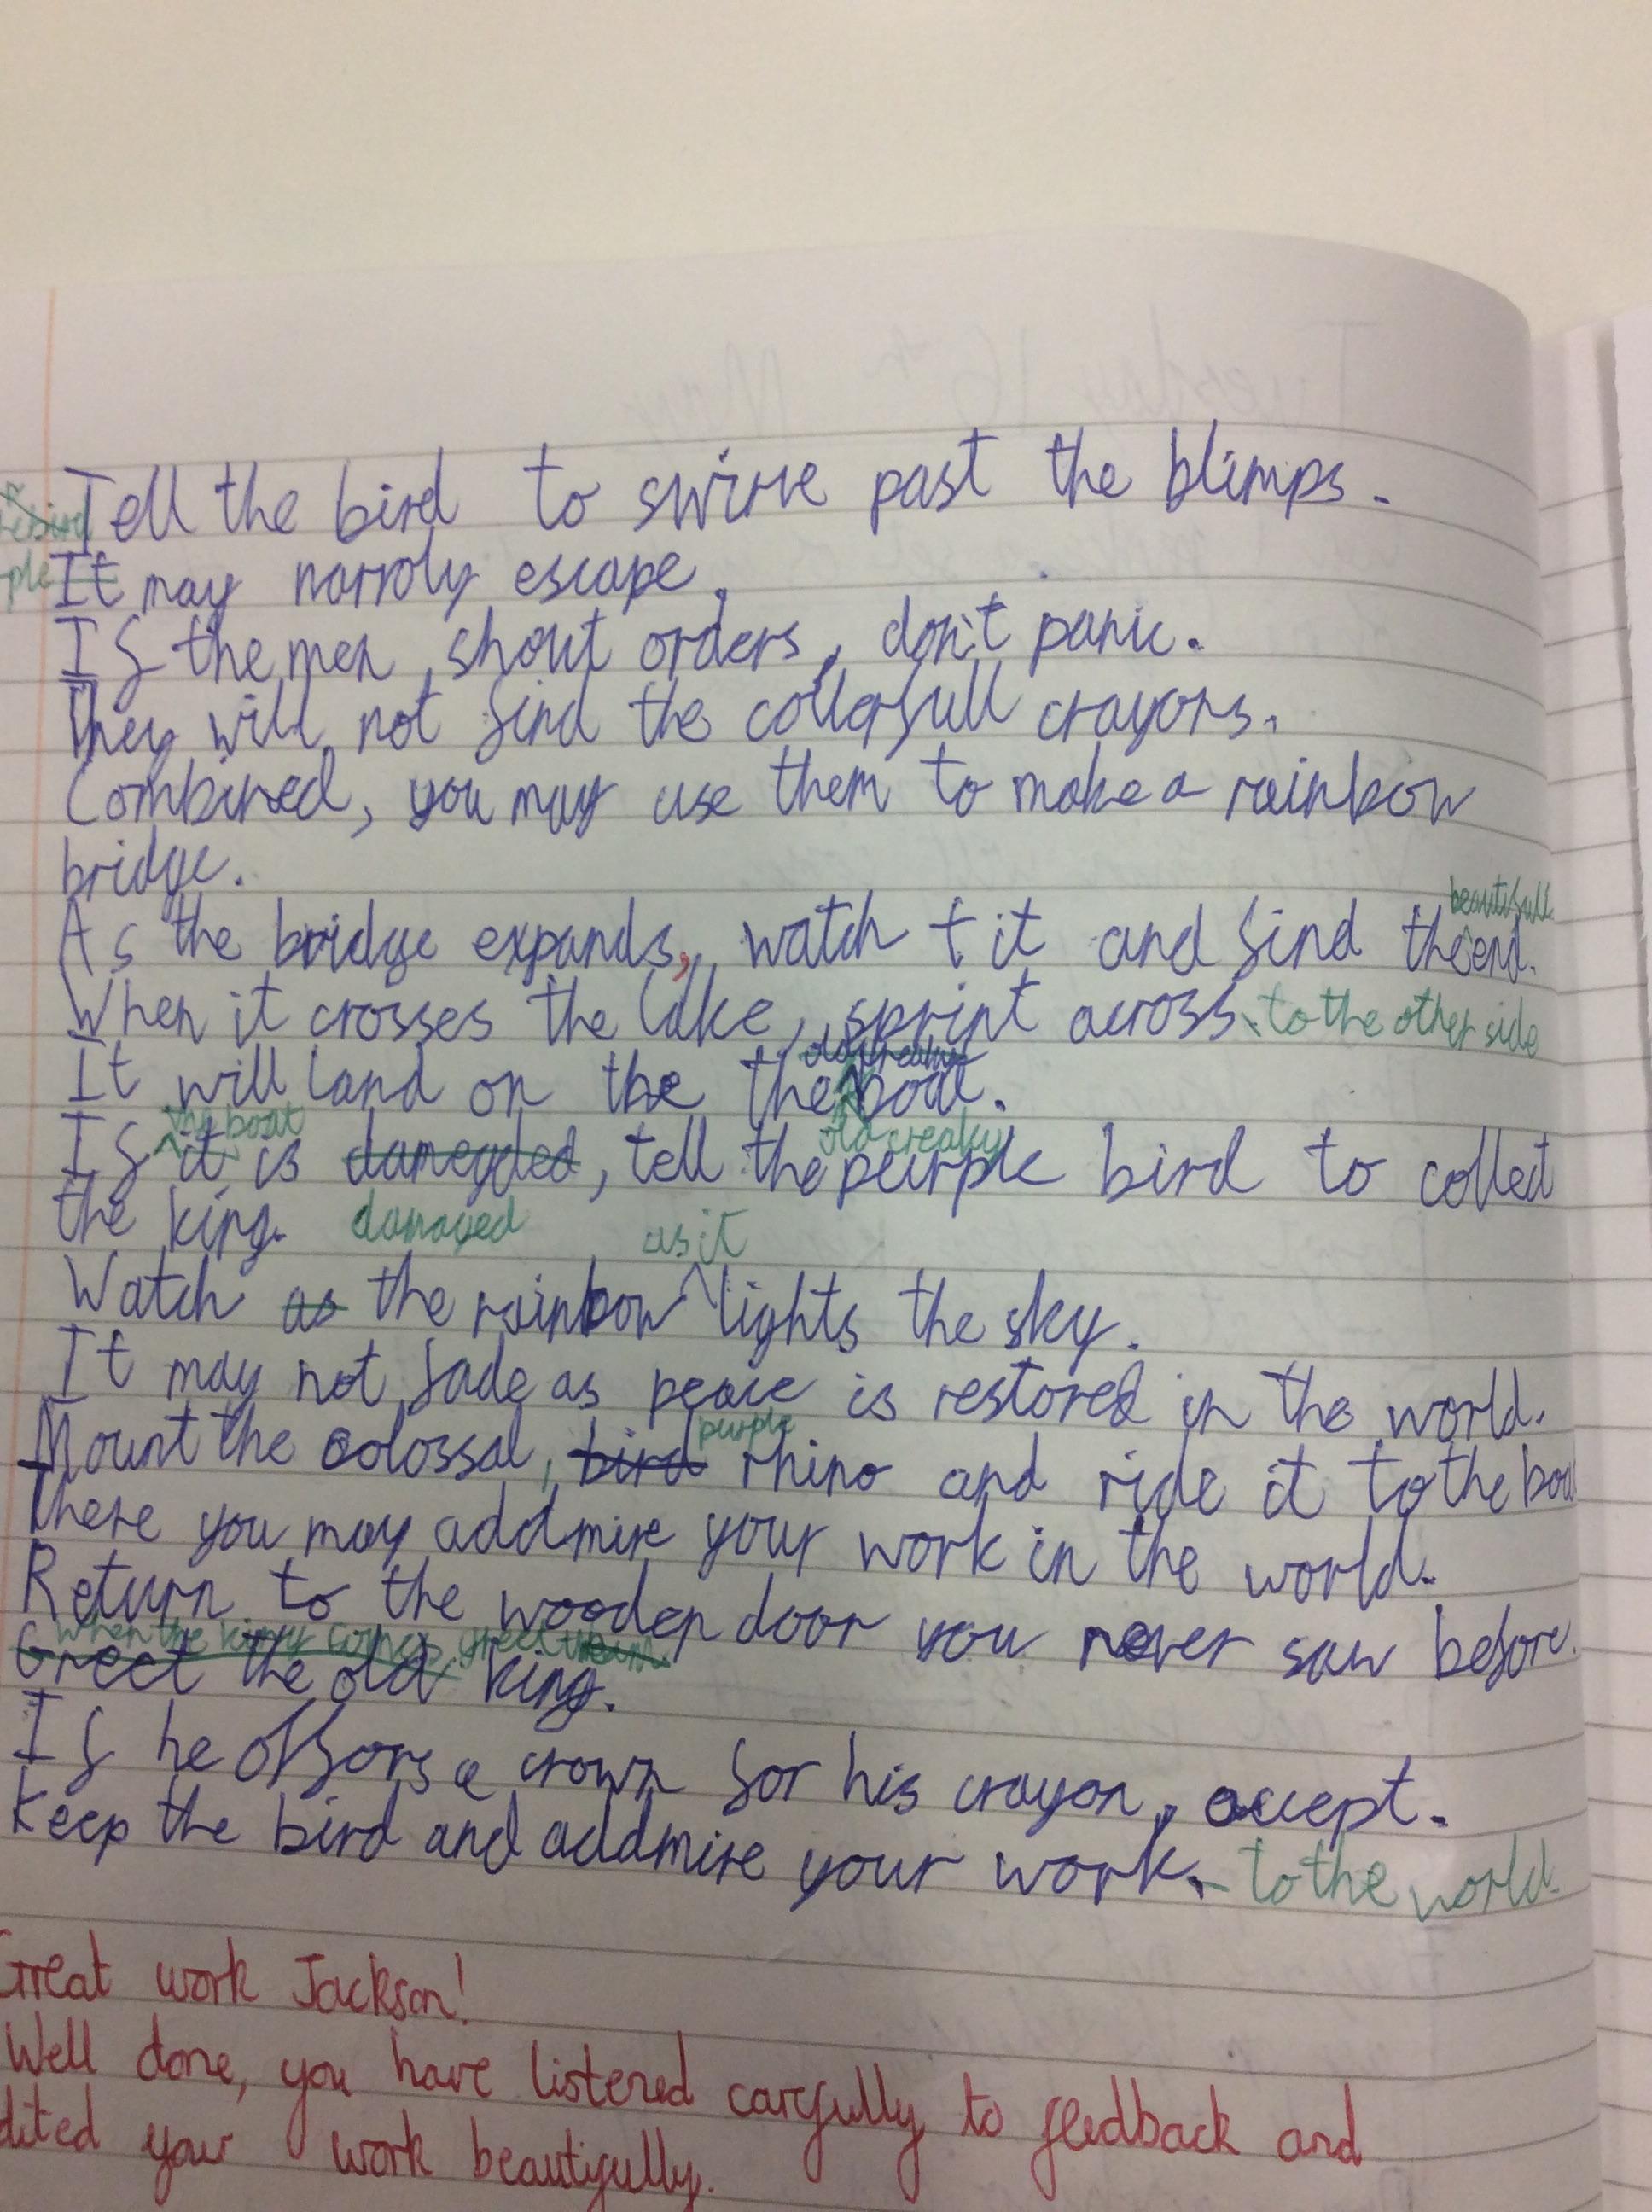 Tell the bird to swirve past the blimps.
It may narroly escape.
If the men shout orders, don't panic.
They will not find the collerfull crayons.
Combined, you may use them to make a rainbow
bridge.
beautifull
As the bridge expands, watch t it and find the end.
When it crosses the lake, sprint across. to the other side
old creaky
It will land on the the boat.
the boat
old creaky
If it is damegded, tell the purple bird to collect
the king. damaged
as it
Watch as the rainbow lights the sky.
It may not fade as peace is restored in the world.
purple
Mount the colossal, bird rhino and ride it to the
There you may addmire your work in the world.
Return to the wooden door you never saw before.
When the king comes, greet him.
Greet the old king.
If he offors a crown for his crayon, accept.
Keep the bird and addmire your work. to the world
Great work Jackson!
Well done, you have listened carefully to feedback and
your work beautifully.